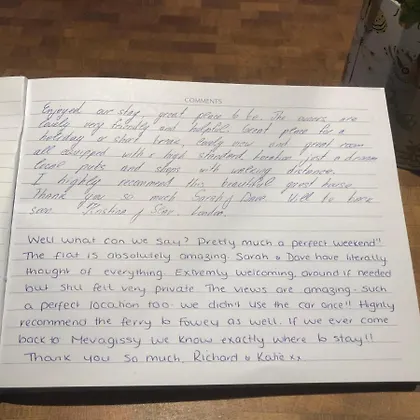 COMMENTS
Enjoyed our stay, great place to be. The owners are
lovely very friendly and helpful. Great place for a
holiday or short break, lovely view and great room
all equipped with a high standard, location just a dream
local pubs and shops with walking distance.
I highly recommend this beautiful guest house.
Thank you so much Sarah & Dave. Will be back
soon. Kristina & Star, London.
Well what can we say? Pretty much a perfect weekend!!
The flat is absolutely amazing. Sarah & Dave have literally
thought of everything. Extremly welcoming, around if needed
but still felt very private. The views are amazing. Such
a perfect location too. We didn't use the car once!! Highly
recommend the ferry to Fowey as well. If we ever come
back to Mevagissy we know exactly where to stay!!
Thank you so much, Richard & Katie xx